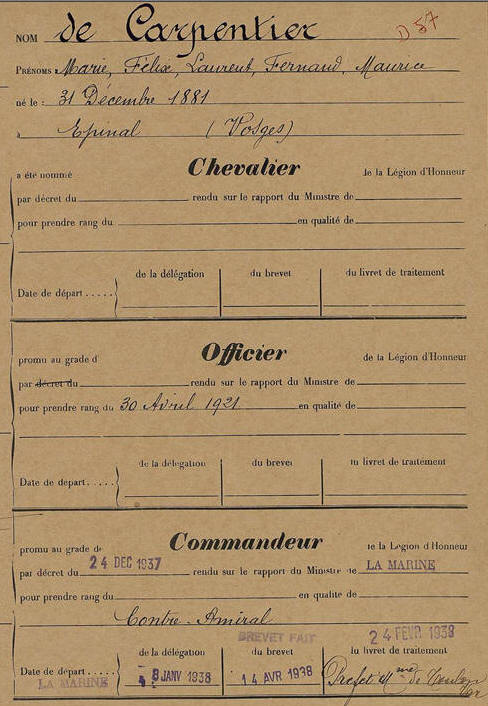 NOM de Carpentier D 57
PRÉNOMS Marie, Félix, Laurent, Fernand, Maurice
né le : 31 Décembre 1881
à Epinal (Vosges)
a été nommé Chevalier de la Légion d'Honneur
par décret du rendu sur le rapport du Ministre de
pour prendre rang du en qualité de
de la délégation du brevet du livret de traitement
Date de départ .....
promu au grade d' Officier de la Légion d'Honneur
par décret du rendu sur le rapport du Ministre de
pour prendre rang du 30 Avril 1921 en qualité de
de la délégation du brevet du livret de traitement
Date de départ .....
promu au grade de Commandeur de la Légion d'Honneur
par décret du 24 DEC 1937 rendu sur le rapport du Ministre de LA MARINE
pour prendre rang du en qualité de
Contre-Amiral
BREVET FAIT 24 FEVR 1938
de la délégation du brevet du livret de traitement
Date de départ ..... 8 JANV 1938 14 AVR 1938 Préfet Mme de Toulon
LA MARINE Var